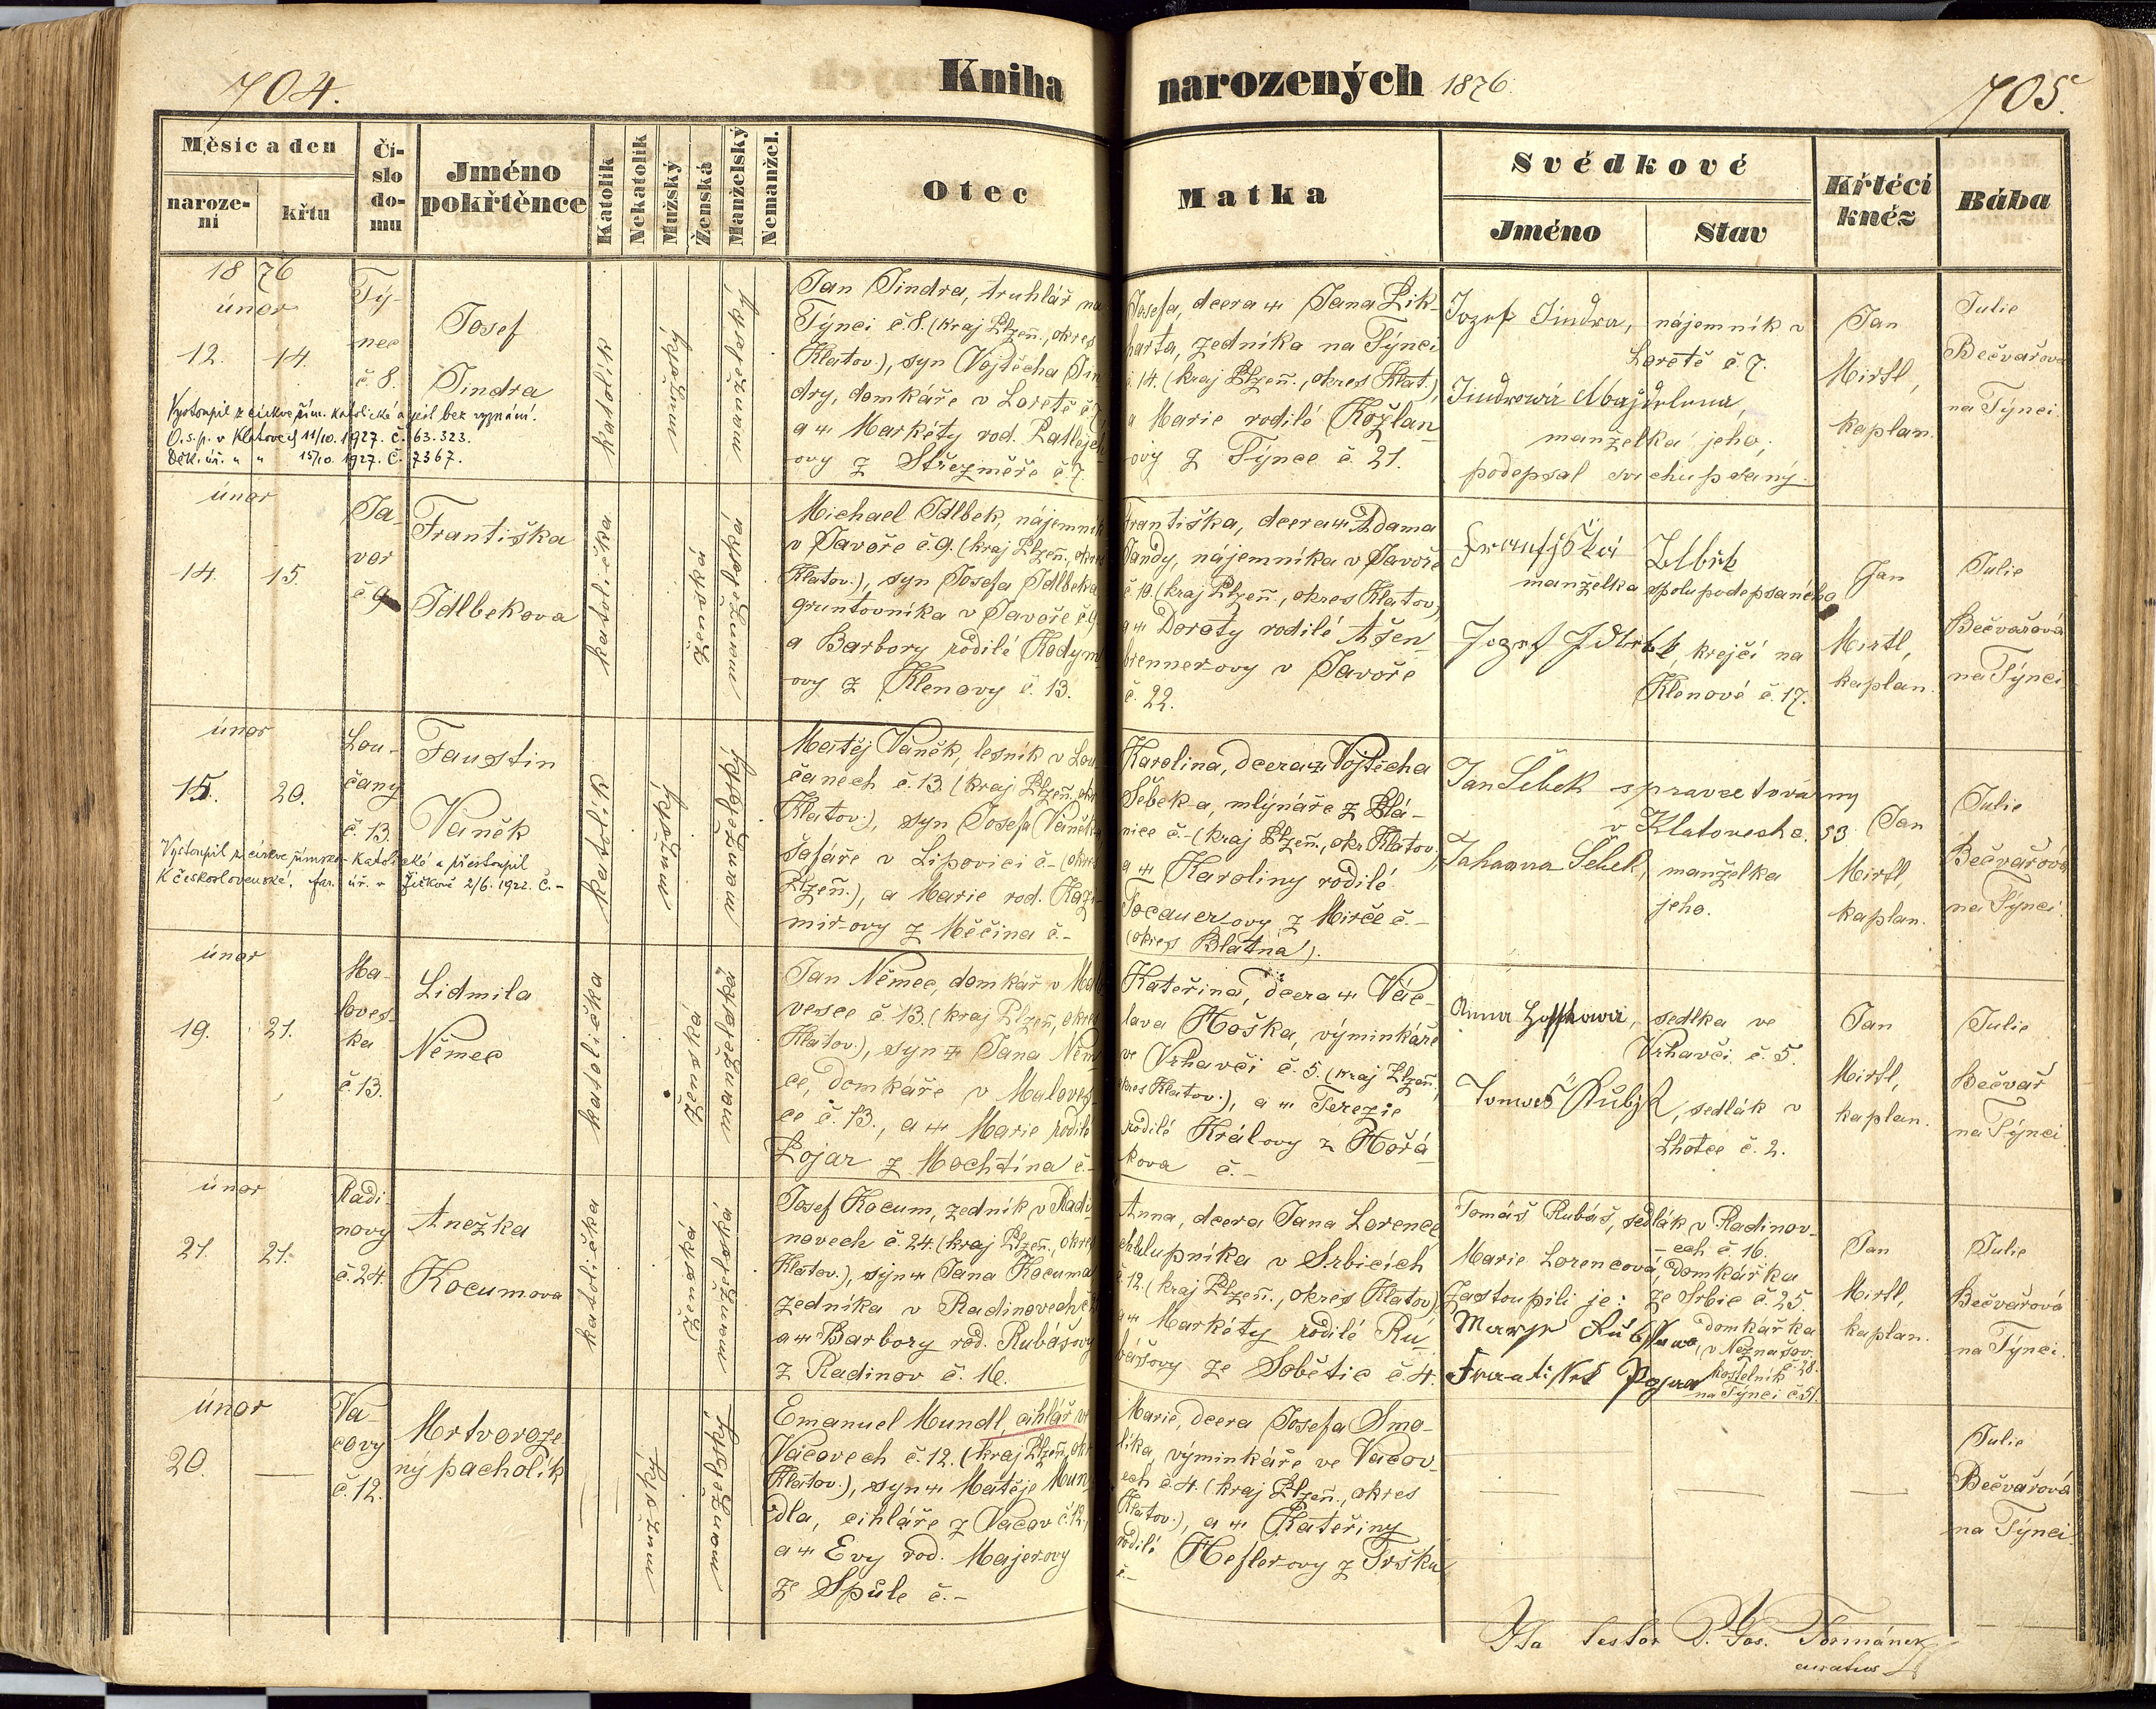 704.
Kniha narozených 1876
705.
Měsíc a den
naroze-
ní
křtu
Čí-
slo
do-
mu
Jméno
pokřtěnce
Katolík
Nekatolík
Mužský
Ženská
Manželský
Nemanžel.
Otec
Matka
Svědkové
Jméno
Stav
Křtící
kněz
Bába
1876
únor
12.
14.
Tý-
nec
č. 8.
Josef
Jindra
Vystoupil z církve řím. katolické a jest bez vyznání.
O.s.p. v Klatovech 11/10. 1927. č. 63.323.
Děk. úř. " " 15/10. 1927. č. 7367.
katolík
mužský
manželský
Jan Jindra, truhlář na
Týnci č. 8. (kraj Plzeň., okres
Klatov.), syn Vojtěcha Jin
dry, domkáře v Loretě č. 7
a ⚭ Markéty rod. Patlejch
ovy z Střezměře č. 7.
Josefa, dcera ⚭ Jana Pik-
harta, zedníka na Týnci
č. 14. (kraj Plzeň., okres Klat.),
a Marie rodilé Kožlan-
ovy z Týnce č. 21.
Jozef Jindra, nájemník v
Loretě č 7.
Jindrová Majdalena,
manželka jeho;
podepsal svrchupsaný.
Jan
Mirtl,
kaplan.
Julie
Bečvařová
na Týnci.
únor
14.
15.
Ja-
vor
č 9
Františka
Idlbekova
katolička
ženská
manželská
Michael Idlbek, nájemník
v Javoře č. 9. (kraj Plzeň., okres
Klatov.), syn Josefa Idlbeka
gruntovníka v Javoře č. 9
a Barbory rodilé Kodym
ovy z Klenovy č. 13.
Františka, dcera ⚭ Adama
Jandy, nájemníka v Javoře
č. 10. (kraj Plzeň., okres Klatov.)
a ⚭ Doroty rodilé Ašen-
brennerovy v Javoře
č. 22.
manželka spolupodepsaného
Jozef Idlbek, krejčí na
Klenové č. 17.
Jan
Mirtl,
kaplan.
Julie
Bečvařová
na Týnci
únor
15.
20.
Lou-
čany
č. 13.
Faustin
Vaněk
Vystoupil z církve římsko-katolické a přestoupil
k československé. far. úř. v Žižkově 2/6. 1922. č. -
katolík
mužský
manželský
Matěj Vaněk, lesník v Lou-
čanech č. 13. (kraj Plzeň., okr.
Klatov.), syn Josefa Vaněka
šafáře v Lipovici č - (okres
Plzeň.), a Marie rod. Kazi-
mirovy z Měčína č. -
Karolina, dcera ⚭ Vojtěcha
Šebeka, mlýnáře z Plá-
nice č. - (kraj Plzeň., okr. Klatov.)
a ⚭ Karoliny rodilé
Tocauerovy z Mirče č. -
(okres Blatná).
Jan Šebek správce továrny
v Klatovech č. 53
Johanna Šebek, manželka
jeho.
Jan
Mirtl,
kaplan.
Julie
Bečvařová
na Týnci.
únor
19.
21.
Ma-
loves-
ka
č. 13.
Lidmila
Němec
katolička
ženská
manželská
Jan Němec, domkář v Malo
vesce č. 13. (kraj Plzeň, okres
Klatov.), syn ⚭ Jana Něm-
ce, domkáře v Maloves-
ce č. 13., a ⚭ Marie rodilé
Pojar z Mochtína č. -
Kateřina, dcera ⚭ Vác-
lava Hoška, výminkáře
ve Vrhavči č. 5. (kraj Plzeň.,
okres Klatov.), a ⚭ Terezie
rodilé Královy z Hořá-
kova č. -
Anna Hoškova, sedlka ve
Vrhavči č. 5.
Tomeš Kubjk, sedlák v
Lhotce č. 2.
Jan
Mirtl,
kaplan.
Julie
Bečvář
na Týnci
únor
21.
21.
Radi-
novy
č. 24.
Anežka
Kocumova
katolička
ženská
manželská
Josef Kocum, zedník v Radi-
novech č. 24. (kraj Plzeň., okres
Klatov.), syn ⚭ Jana Kocuma
zedníka v Radinovech č. 2
a ⚭ Barbory rod. Rubášovy
z Radinov č. 16.
Anna, dcera Jana Lorence
chalupníka v Srbicích
č. 12. (kraj Plzeň., okres Klatov.),
a ⚭ Markéty rodilé Ru-
bášovy ze Sobětic č. 4.
Tomáš Rubáš, sedlák v Radinov-
-ech č. 16.
Marie Lorencová, domkářka
Zastoupili je: ze Srbic č. 25.
domkářka
v Neznašov.
č. 28.
kostelník
na Týnci č. 51.
Jan
Mirtl,
kaplan.
Julie
Bečvařová
na Týnci.
únor
20.
—
Va-
covy
č. 12.
Mrtvoroze-
ný pacholík
—
mužský
manželský
Emanuel Mundl, cihlář ve
Vacovech č. 12. (kraj Plzeň., okr.
Klatov.), syn ⚭ Matěje Mun-
dla, cihláře z Vacov č. 12,
a ⚭ Evy rod. Majerovy
ze Spůle č. -
Marie, dcera Josefa Smo-
líka, výminkáře ve Vacov-
ech č. 4. (kraj Plzeň., okres
Klatov.), a ⚭ Kateřiny
rodilé Heflerovy z Trsku
č. -
— — —
Julie
Bečvařová
na Týnci
Ita testor P. Jos. Formánek
curatus